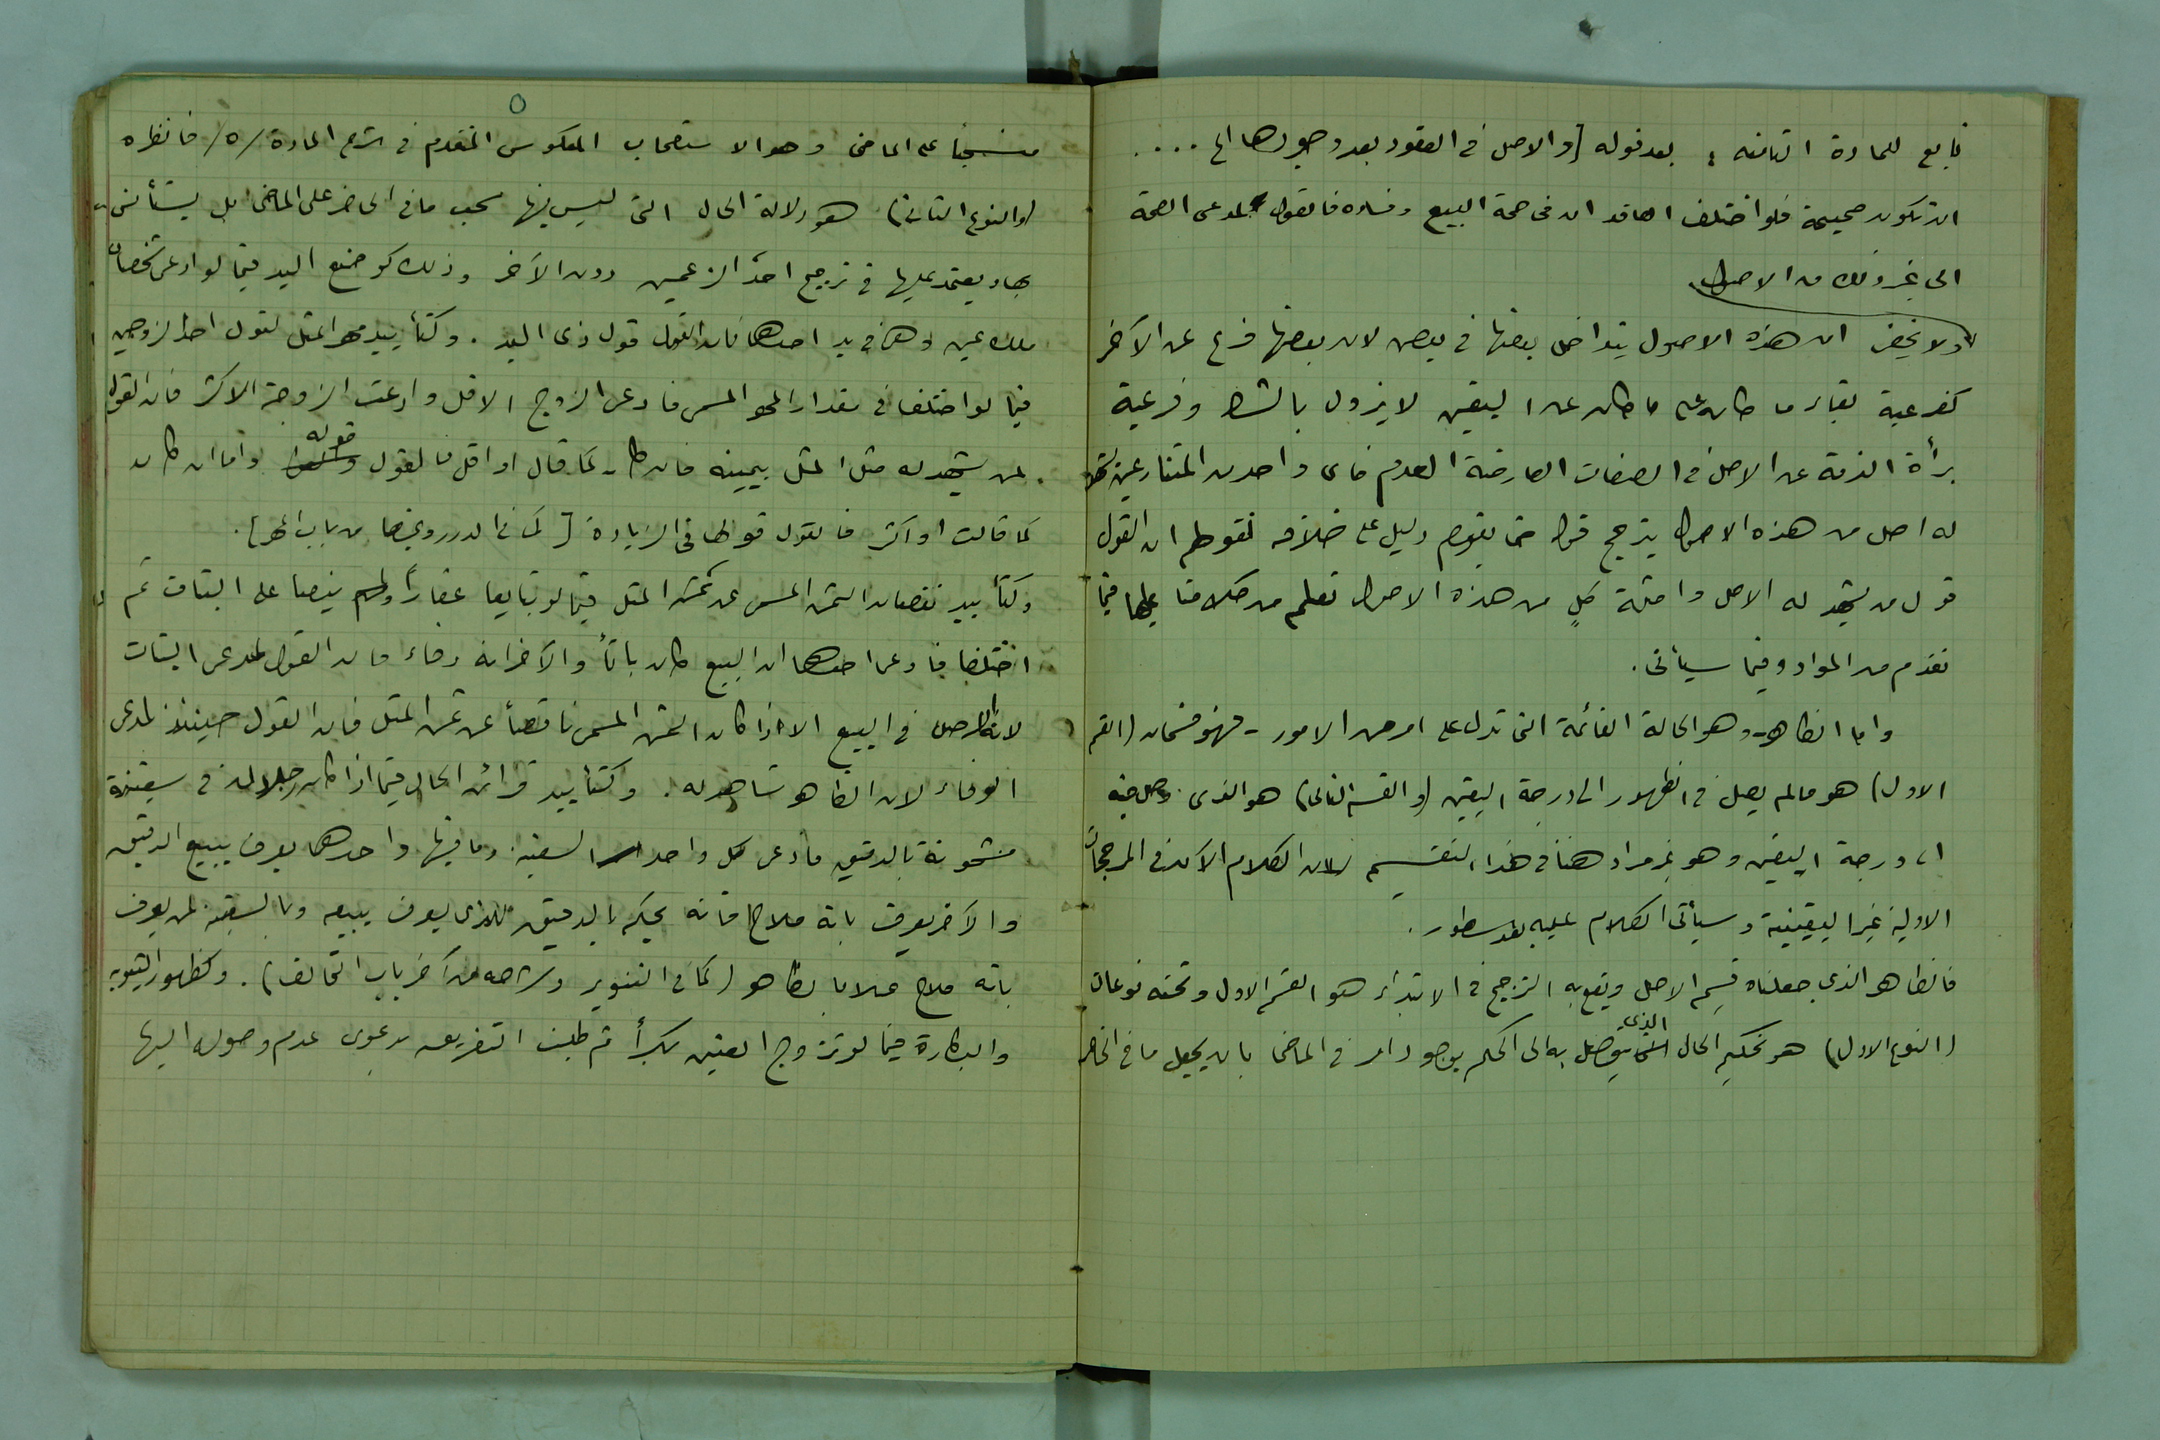 تابع للمادة الثامنة : بعد قوله [والاصل في العقود بعد وجودها الخ ....
ان تكون صحيحة فلو اختلف العاقدان في صحة البيع وفساده فالقول لمدعي الصحة
الى غير ذلك من الاصول
ولا يخفى ان هذه الاصول يتداخل بعضها في بعض لان بعضها فرع عن الآخر
كفرعية بقاء ما كان على ما كان عن اليقين لا يزول بالشك وفرعية
برأة الذمة عن الاصل في الصفات العارضة العدم فأي واحد من المتنازعين شهد
له اصل من هذه الاصول يترجح قوله حتى يقوم دليل على خلافه لقولهم ان القول
قول من يشهد له الاصل وامثلة كلٍ من هذه الاصول تعلم من كلامنا عليها فيما
تقدم من المواد وفيما سيأتي .
واما الظاهر - وهو الحالة القائمة التي تدل على امر من الامور - فهو قسمان (القسم
الاول) هو مالم يصل في الظهور الى درجة اليقين (والقسم الثاني) هو الذي وصل فيه
الى درجة اليقين وهو غير مراد هنا في هذا التقسيم لان الكلام الآن في المرجحات
الاولية غير اليقينية وسيأتي الكلام عليه بعد سطور .
فالظاهر الذي جعلناه قسيم الاصل ويقع به الترجيح في الابتداء هو القسم الاول وتحته نوعان
(النوع الاول) هو تحكيم الحال الذي يتوصل به الى الحكم بوجود امر في الماضي بان يجعل ما في الحاضر
٥
منسحباً على الماضي وهو الاستصحاب المعكوس المتقدم في شرح المادة /٥/ فانظره
(والنوع الثاني) هو دلالة الحال التي ليس فيها سحب ما في الحاضر على الماضي بل يستأنس
بها ويعتمد عليها في ترجيح احد الزعمين دون الآخر وذلك كوضع اليد فيما لو ادعى شخصان
ملك عين وهي في يد احدهما فان القول قول ذي اليد . وكتأييد مهر المثل لقول احد الزوجين
فيما لو اختلفا في مقدار المهر المسمى فادعى الزوج الاقل وادعت الزوجة الاكثر فان القول
لمن يشهد له مهر المثل بيمينه فان كان كما قال او اقل فالقول قوله واما ان كان
كما قالت او اكثر فالقول قولها في الزيادة [كما في الدرر وغيرها من باب المهر].
وكتأييد نقصان الثمن المسمى عن ثمن المثل فيما لو تبايعا عقاراً ولم ينصا على البتات ثم
اختلفا فادعى احدهما ان البيع كان باتاً والآخر انه وفاء فان القول لمدعي البتات
لانه الاصل في البيع الا اذا كان الثمن المسمى ناقصاً عن ثمن المثل فان القول حينئذ لمدعي
الوفاء لان الظاهر شاهد له . وكتأييد قرائن الحال فيما اذا كان رجلان في سفينة
مشحونة بالدقيق فادعى كل واحد السفينة وما فيها واحدهما يعرف ببيع الدقيق
والآخر يعرف بانه ملاح فانه يحكم بالدقيق للذي يعرف ببيعه وبالسفينة لمن يعرف
بانه ملاح عملا بالظاهر (كما في التنوير وشرحه من آخر باب التحالف) . وكظهور الثيوبة
والبكارة فيما لو تزوج العنين بكراً ثم طلبت التفريق بدعوى عدم وصوله اليها